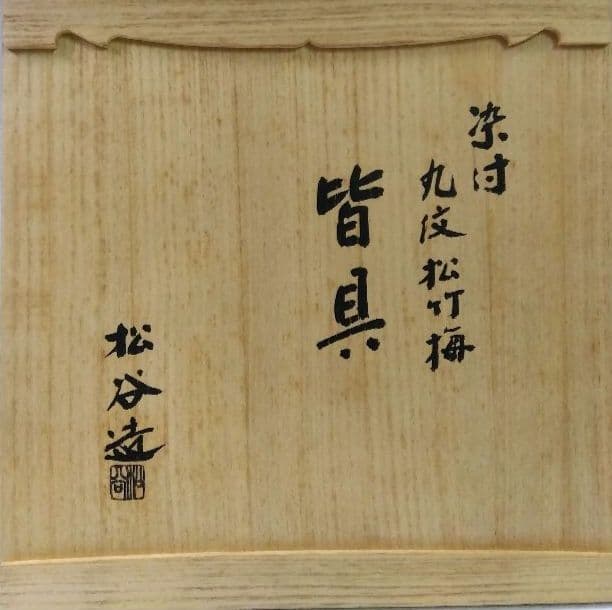 染付
丸紋松竹梅
皆具
松谷造